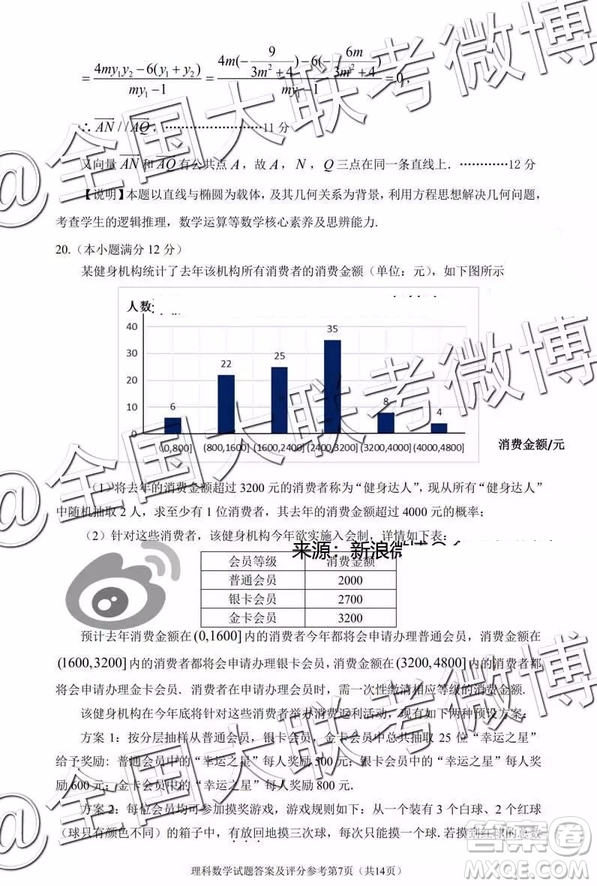 = 4my₁y₂−6(y₁+y₂) / my₁−1 = 4m(−9/3m²+4)−6(−6m/3m²+4) / my₁−1 = 0,
∴ AN // AQ, ⋯⋯⋯⋯⋯⋯11 分
又向量 AN 和 AQ 有公共点 A，故 A，N，Q 三点在同一条直线上．⋯⋯⋯⋯12 分
【说明】本题以直线与椭圆为载体，及其几何关系为背景，利用方程思想解决几何问题，
考查学生的逻辑推理，数学运算等数学核心素养及思辨能力.
20.（本小题满分 12 分）
某健身机构统计了去年该机构所有消费者的消费金额（单位：元），如下图所示
人数:
40
30
20
10
0
6
22
25
35
8
4
(0,800]
(800,1600]
(1600,2400]
(2400,3200]
(3200,4000]
(4000,4800]
消费金额/元
（1）将去年的消费金额超过 3200 元的消费者称为“健身达人”，现从所有“健身达人”
中随机抽取 2 人，求至少有 1 位消费者，其去年的消费金额超过 4000 元的概率；
（2）针对这些消费者，该健身机构今年欲实施入会制，详情如下表：
来源：新浪微博@
会员等级 消费金额
普通会员 2000
银卡会员 2700
金卡会员 3200
预计去年消费金额在 (0,1600] 内的消费者今年都将会申请办理普通会员，消费金额在
(1600,3200] 内的消费者都将会申请办理银卡会员，消费金额在 (3200,4800] 内的消费者都将会
申请办理金卡会员．消费者在申请办理会员时，需一次性缴清相应等级的消费金额.
该健身机构在今年底将针对这些消费者举办消费返利活动，现有如下两种预设方案：
方案 1：按分层抽样从普通会员，银卡会员，金卡会员中总共抽取 25 位“幸运之星”
给予奖励：普通会员中的“幸运之星”每人奖励 500 元；银卡会员中的“幸运之星”每人
奖励 600 元；金卡会员中的“幸运之星”每人奖励 800 元.
方案 2：每位会员均可参加摸奖游戏，游戏规则如下：从一个装有 3 个白球、2 个红球
（球只有颜色不同）的箱子中，有放回地摸三次球，每次只能摸一个球.若摸到红球的总数
理科数学试题答案及评分参考第7页（共14页）
@全国大联考微博
@全国大联考微博
@全国大联考微博
答案圈